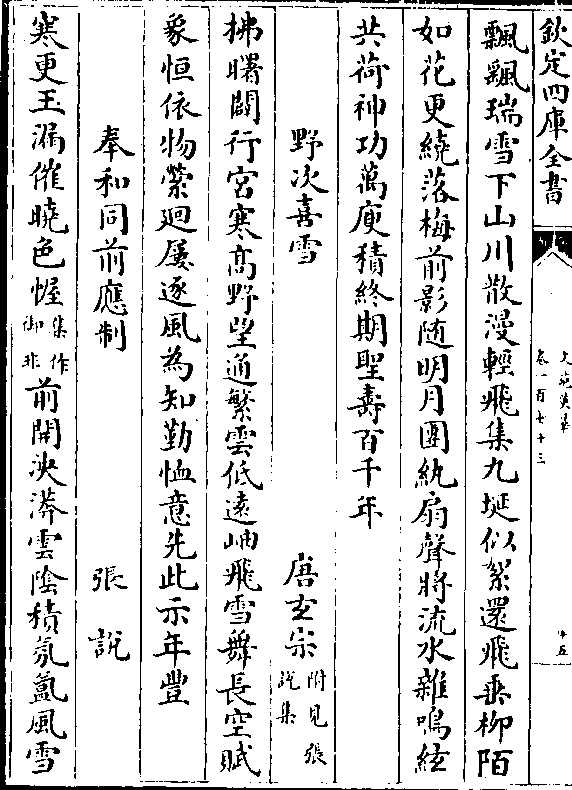 欽定四庫全書
文苑英華
卷一百七十三
十五
飄飄瑞雪下山川散漫輕飛集九埏似絮還飛垂柳陌
如花更繞落梅前影随明月團紈扇聲將流水雜鳴絃
共荷神功萬庾積終期聖壽百千年
野次喜雪 唐玄宗附見張説集
拂曙闢行宫寒髙野望通繁雲低逺岫飛雪舞長空賦
象恒依物縈迴屢逐風為知勤恤意先此示年豐
奉和同前應制 張説
寒更玉漏催曉色幄集作御非前開泱漭雲陰積氛氳風雪